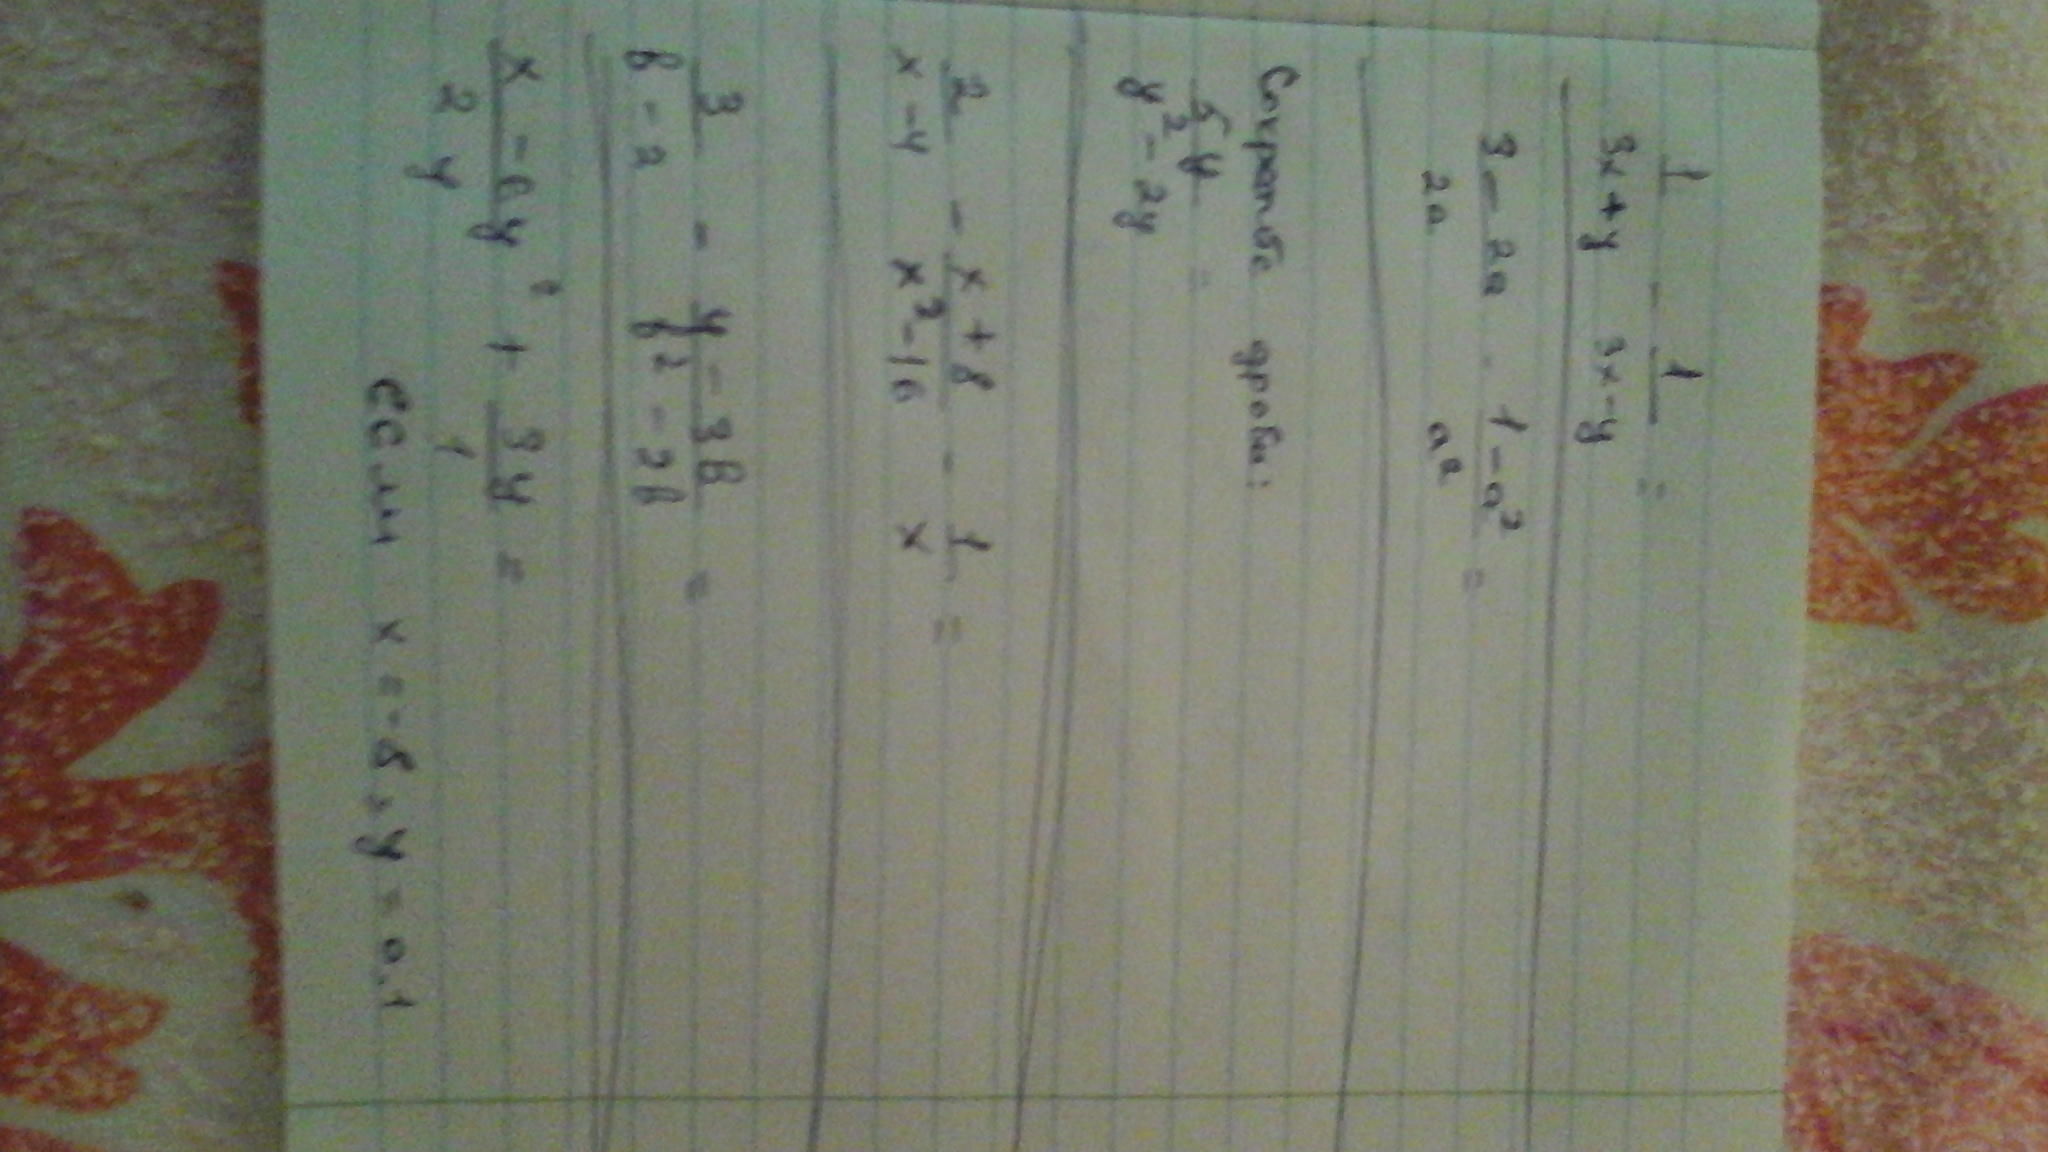 1/(3x+y) - 1/(3x-y) =
(3-2a)/(2a) - (1-a²)/(a²) =
Сократите дроби:
5y/(y²-2y) =
2/(x-4) - (x+8)/(x²-16) - 1/x =
3/(b-2) - (4-3b)/(b²-2b) =
(x-6y²)/(2y) + 3y/1 =
если x=-8, y=0,1